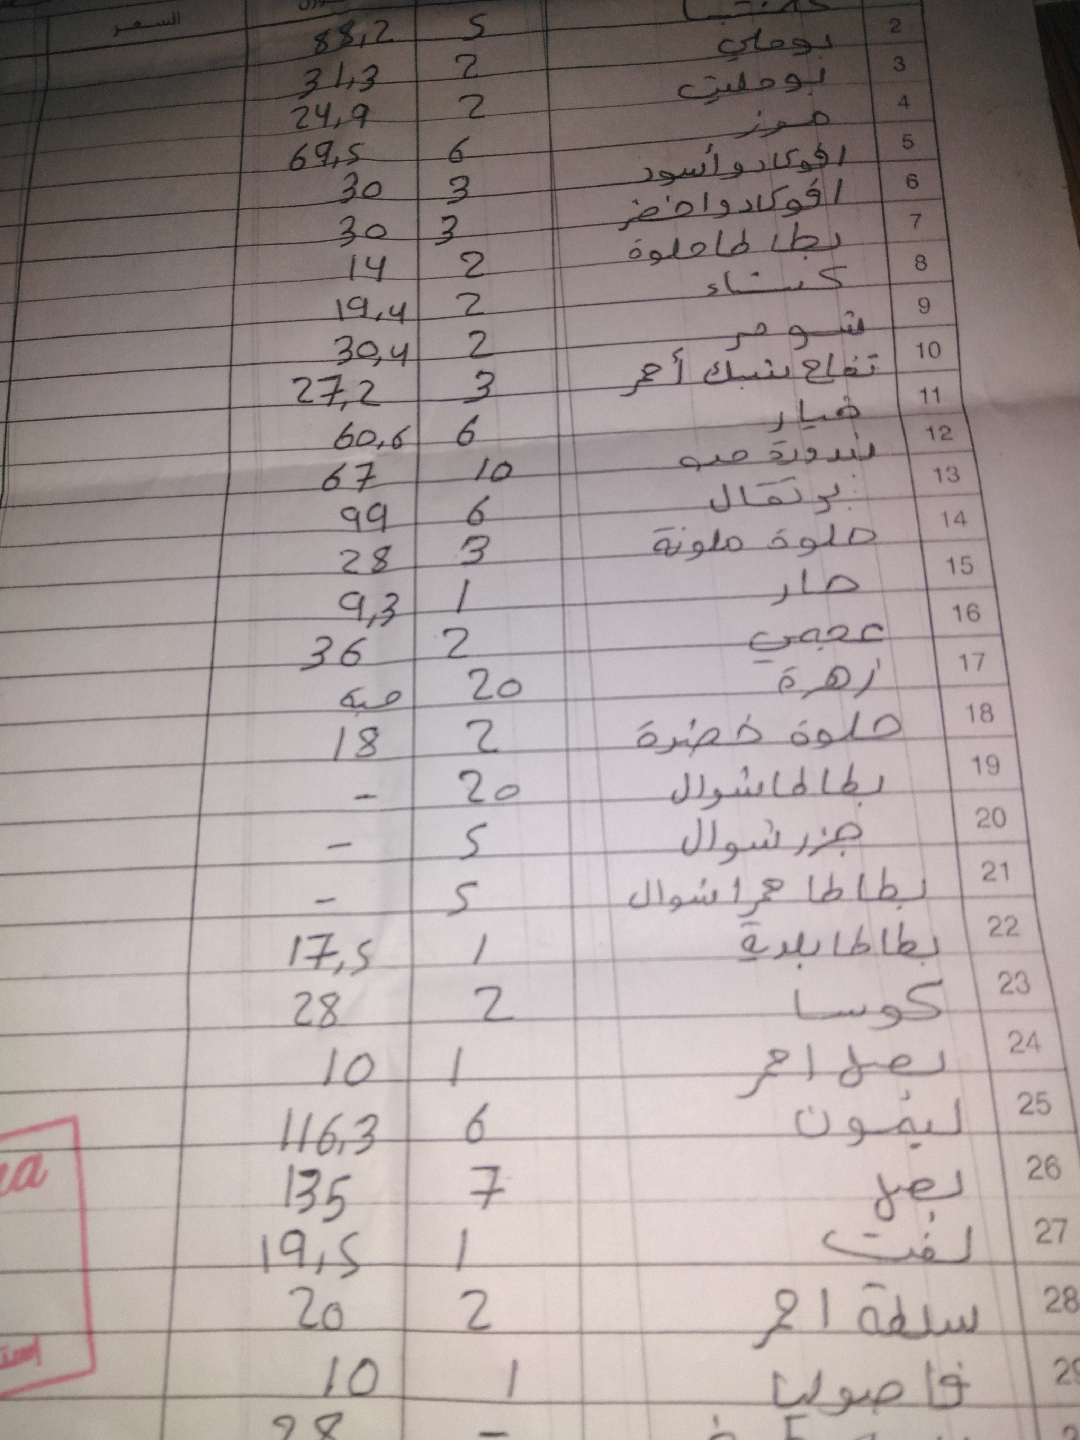 السعر
كلمنتينا 5 88,2
2 بوملي 2 31,3
3 بومليت 2 24,9
4 موز 6 69,5
5 افوكادو أسود 3 30
6 افوكادو اخضر 3 30
7 بطاطا حلوة 2 14
8 كستناء 2 19,4
9 شومر 2 30,4
10 تفاح بنك أحمر 3 27,2
11 خيار 6 60,6
12 بندورة حبه 10 67
13 برتقال 6 99
14 حلوة ملونة 3 28
15 حار 1 9,3
16 عجمي 2 36
17 زهرة 20 حبه
18 حلوة خضرة 2 18
19 بطاطا شوال 20 -
20 جزر شوال 5 -
21 بطاطا حمرا شوال 5 -
22 بطاطا بلدية 1 17,5
23 كوسا 2 28
24 بصل احمر 1 10
25 ليمون 6 116,3
26 بصل 7 135
27 لفت 1 19,5
28 سلطة احمر 2 20
29 فاصوليا 1 10
28